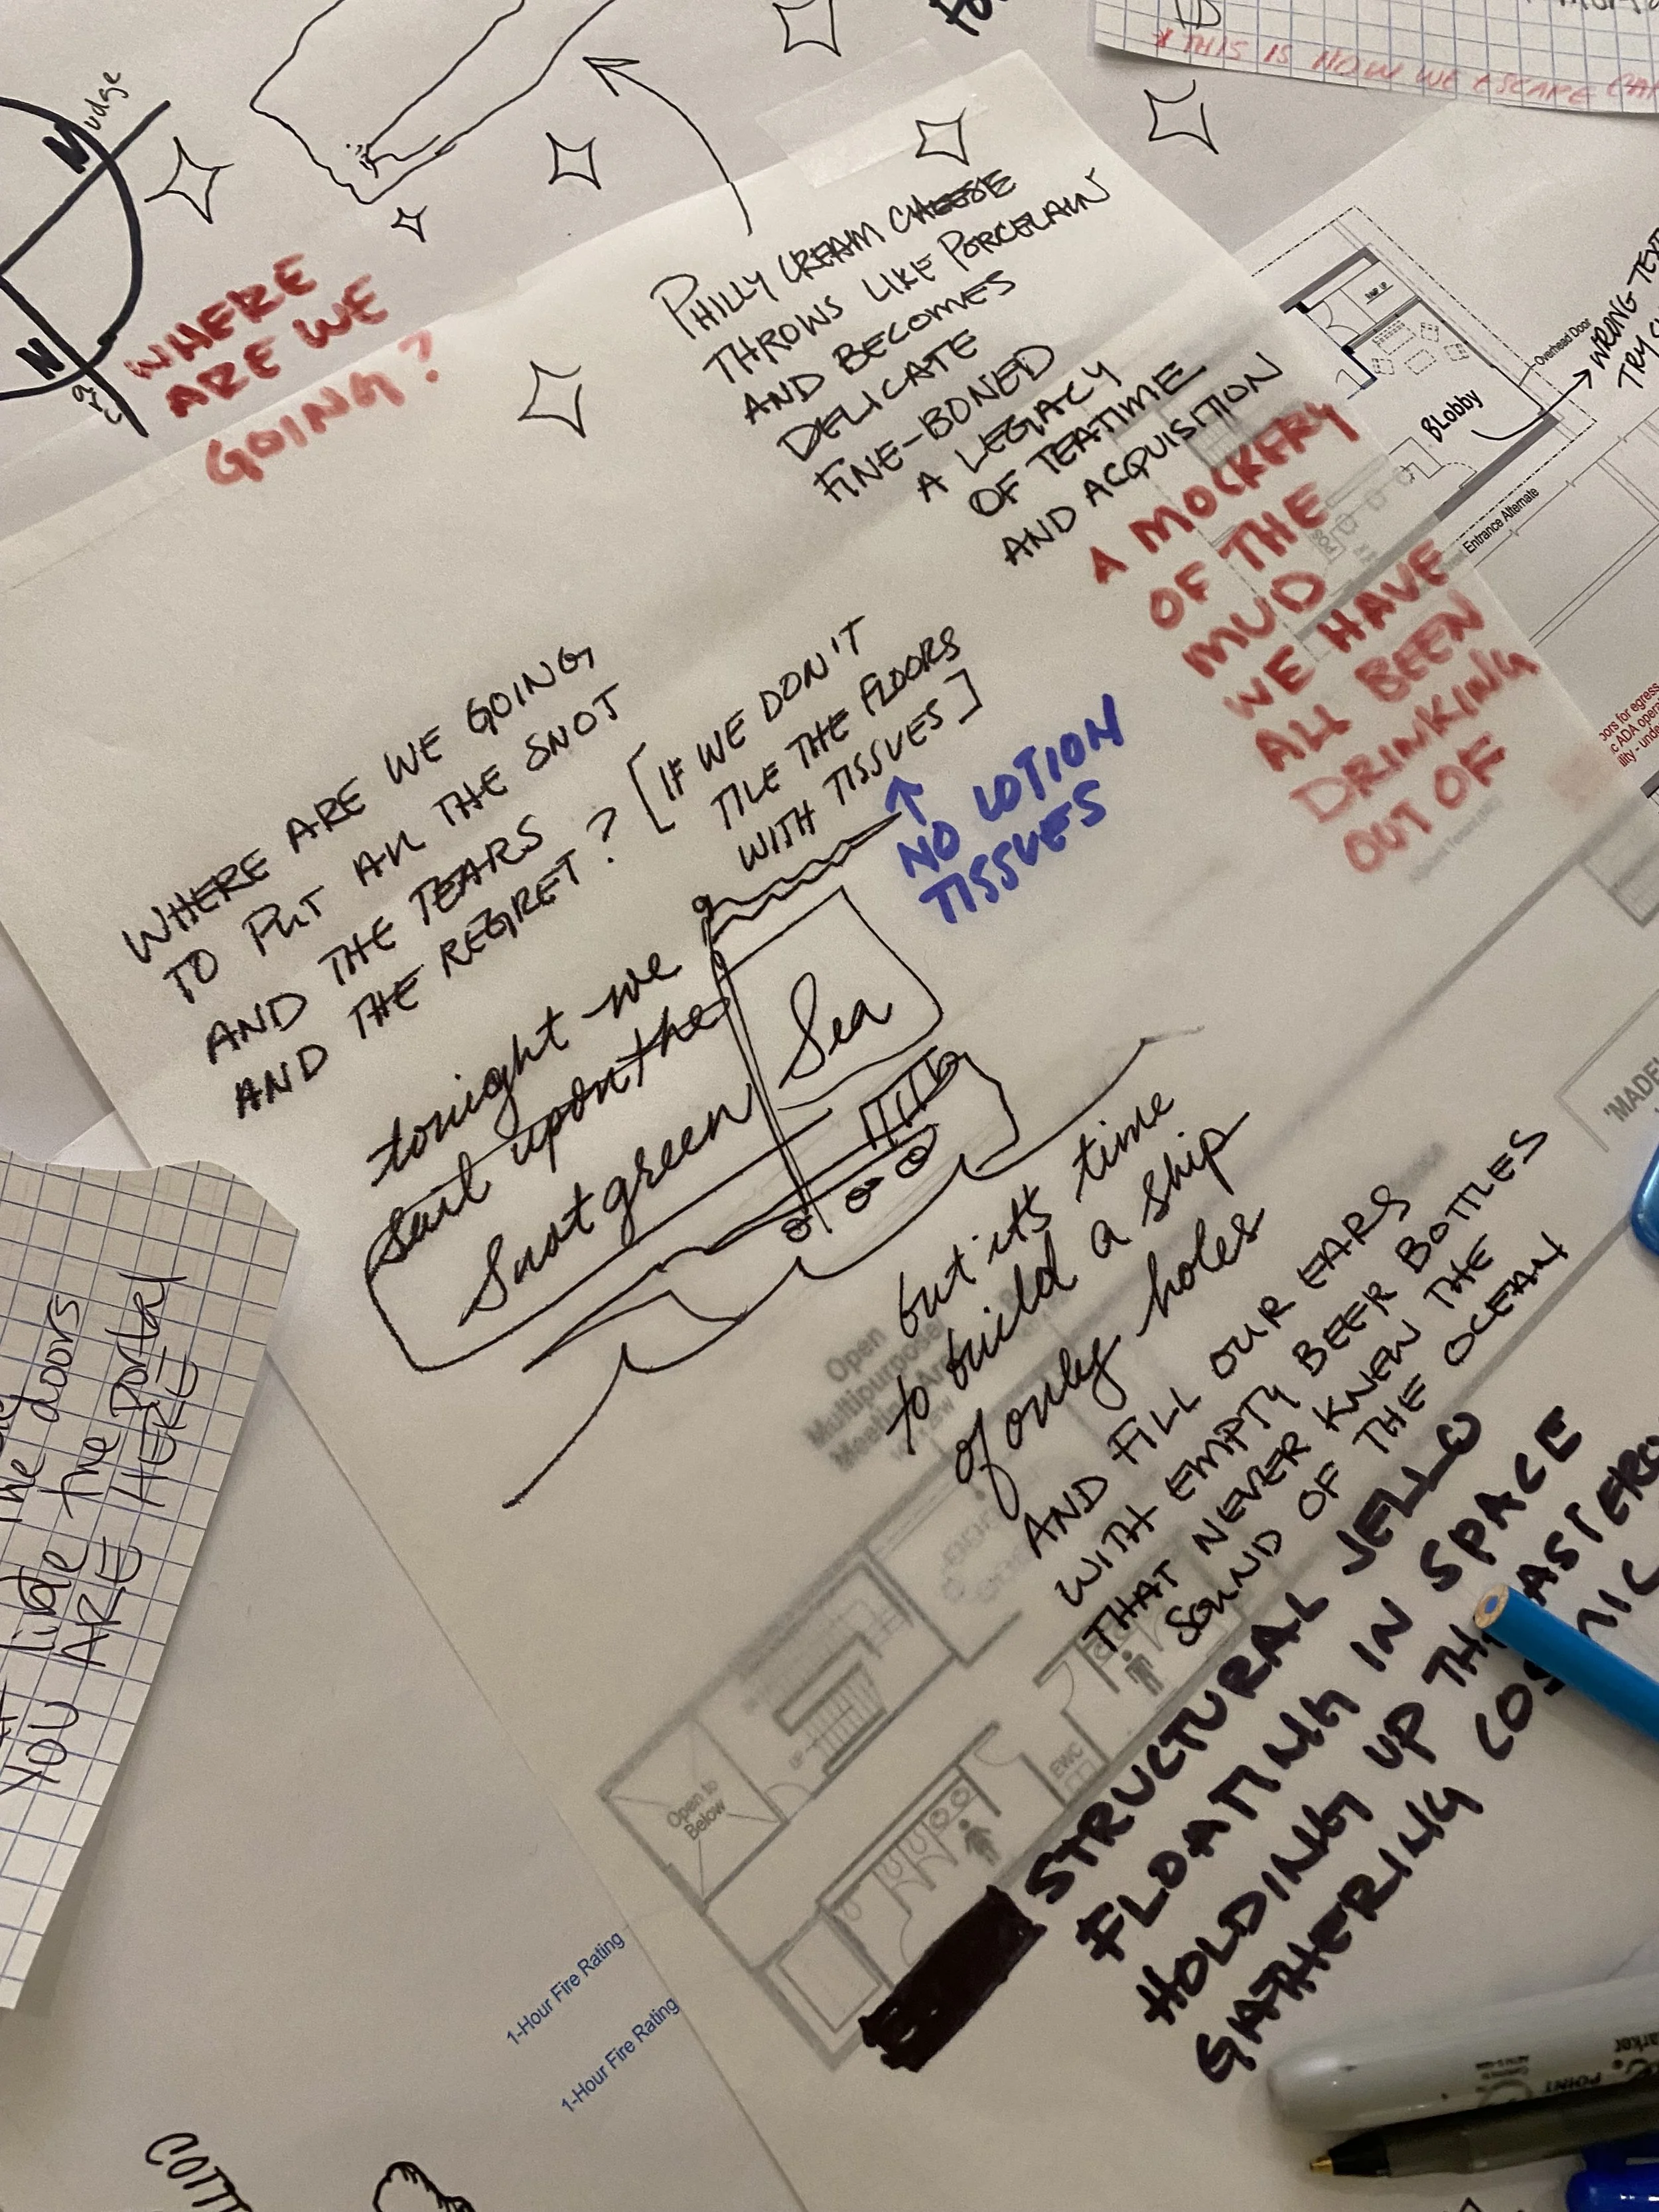 * THIS IS HOW WE ESCAPE
udge
N
N
WHERE
ARE WE
GOING?
PHILLY CREAM CHEESE
THROWS LIKE PORCELAIN
AND BECOMES
DELICATE
FINE-BONED
A LEGACY
OF TEATIME
AND ACQUISITION
A MOCKERY
OF THE
MUD
WE HAVE
ALL BEEN
DRINKING
OUT OF
BLobby
Overhead Door
Entrance Alternate
WRONG
TRY
POS
for egress
ADA
WHERE ARE WE GOING
TO PUT ALL THE SNOT
AND THE TEARS
AND THE REGRET? [IF WE DON'T
TILE THE FLOORS
WITH TISSUES]
↑
NO LOTION
TISSUES
tonight we
sail upon the
Snotgreen
Sea
but it's time
to build a ship
of only holes
AND FILL OUR EARS
WITH EMPTY BEER BOTTLES
THAT NEVER KNEW THE
SOUND OF THE OCEAN
STRUCTURAL JELLO
FLOATING IN SPACE
HOLDING UP
GATHERING
"MADE
Open
Multipurpose
EWC
UP
Open to
Below
the doors
like the portal
YOU ARE HERE
1-Hour Fire Rating
1-Hour Fire Rating
POINT